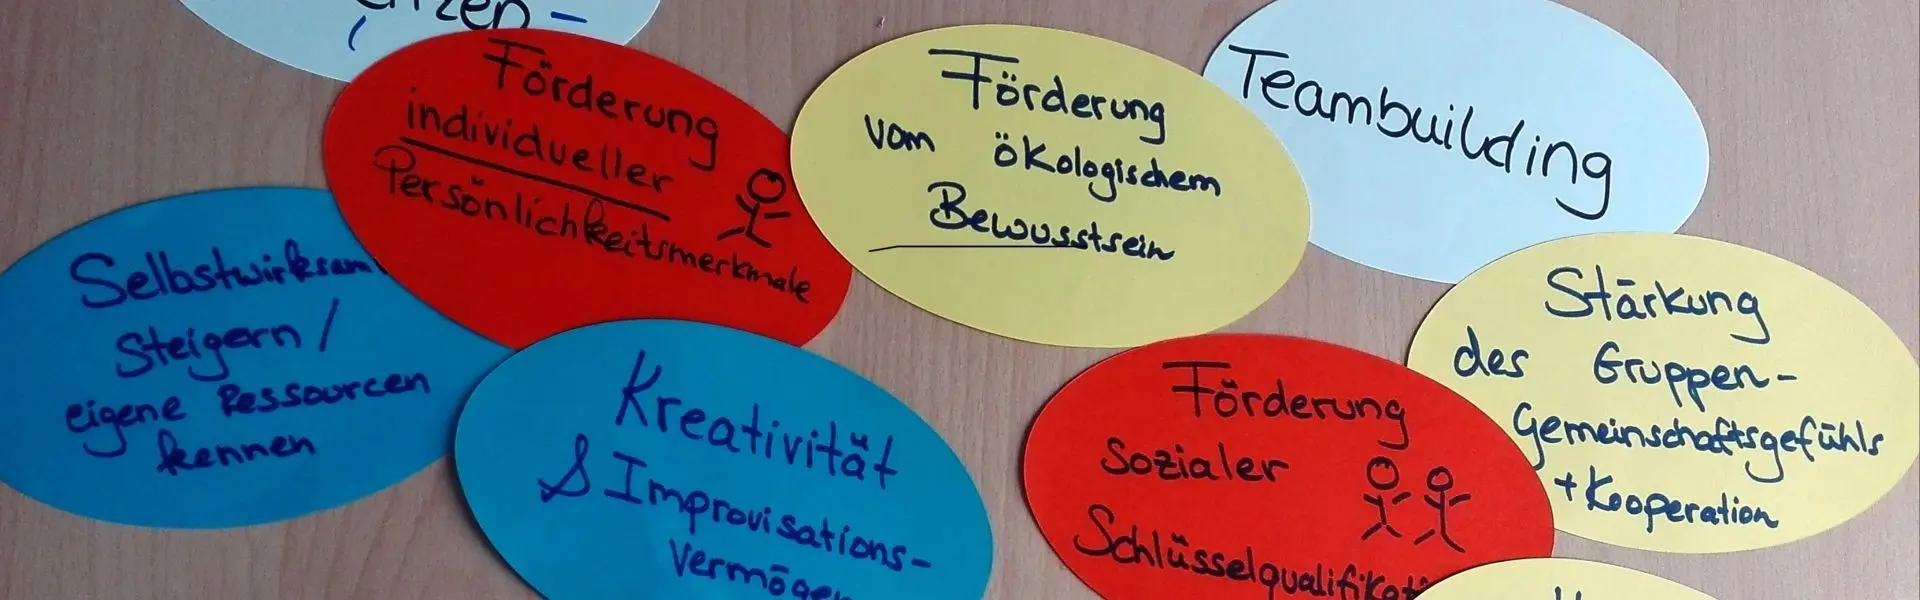 Förderung
individueller
Persönlichkeitsmerkmale
Förderung
vom ökologischem
Bewusstsein
Teambuilding
Selbstwirksam
steigern /
eigene Ressourcen
kennen
Kreativität
& Improvisations-
vermögen
Förderung
sozialer
Schlüsselqualifikat
Stärkung
des Gruppen-
gemeinschaftsgefühls
+ Kooperation